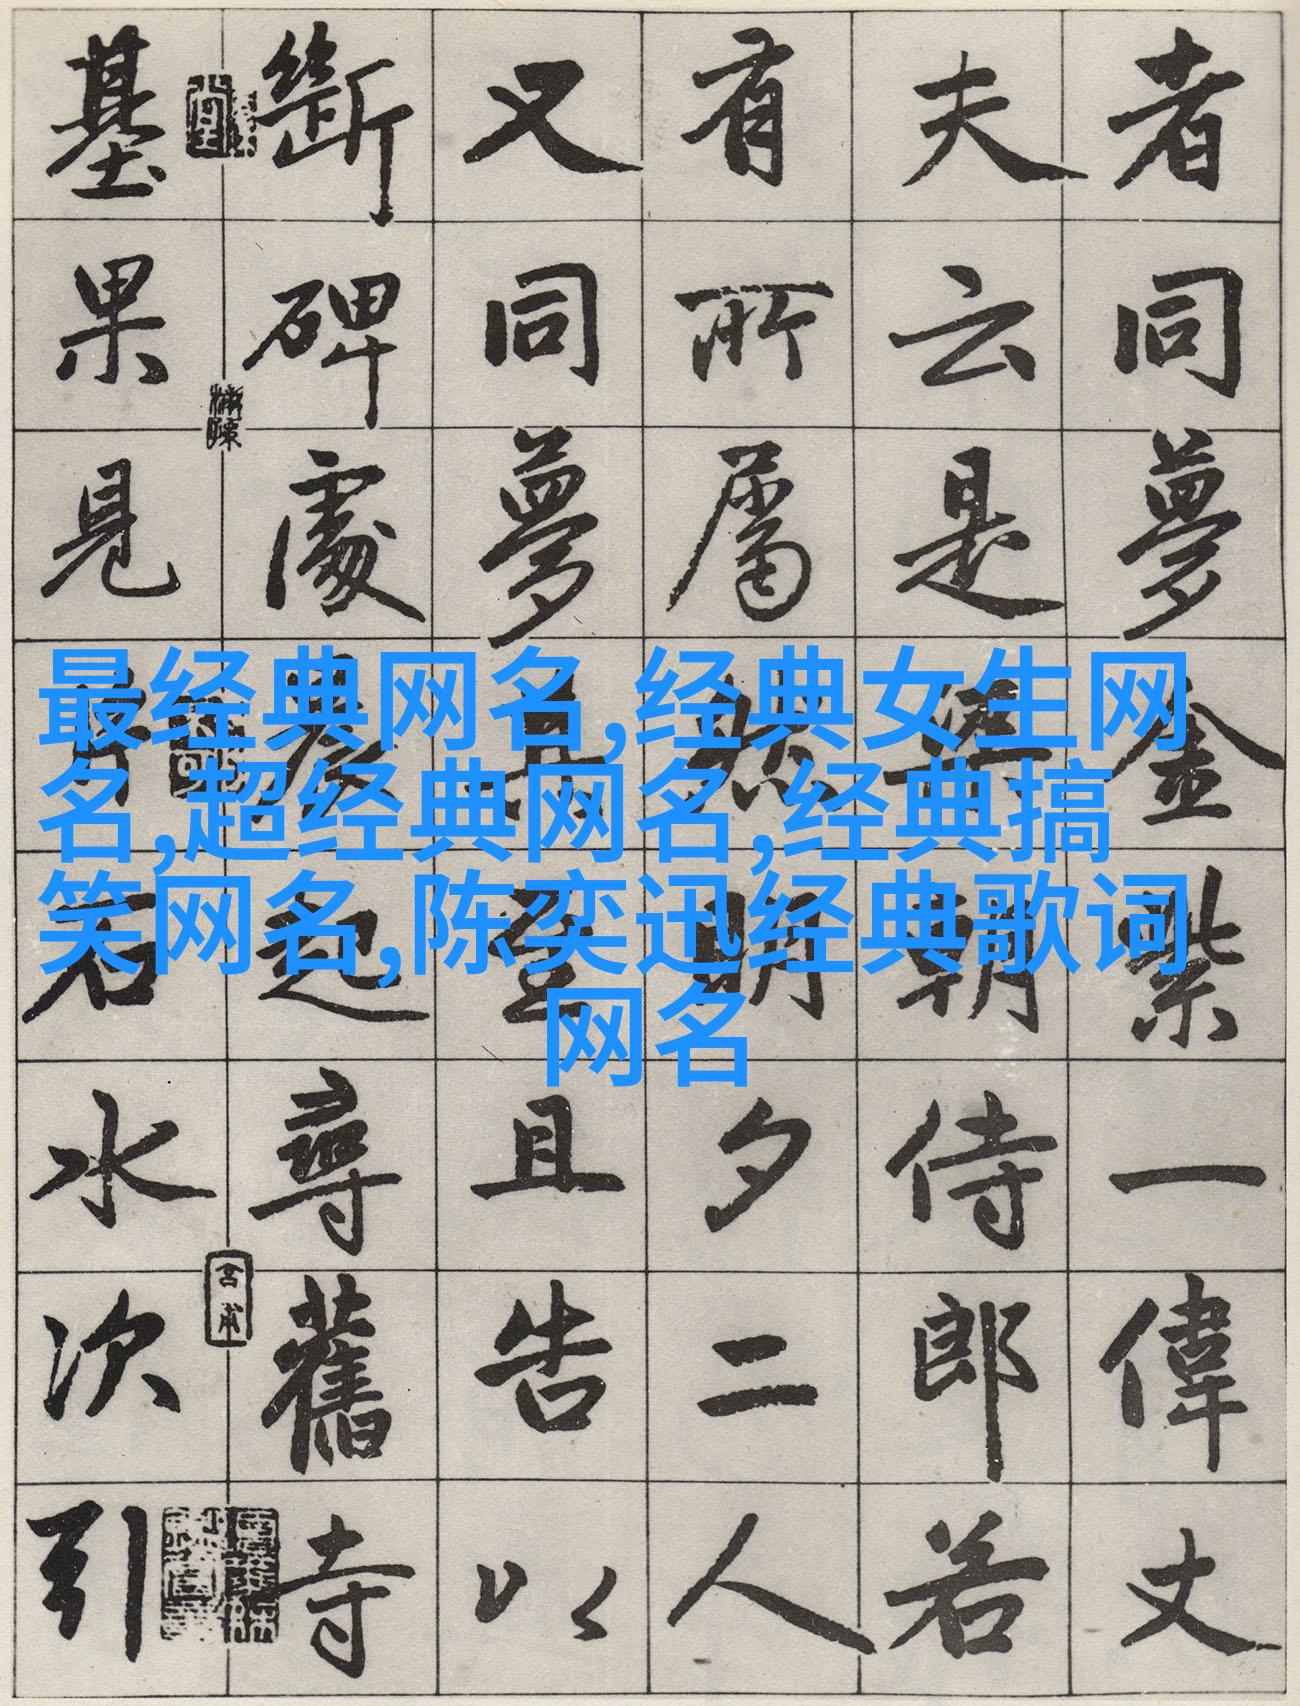 最经典网名,经典女生网
名,超经典网名,经典搞
笑网名,陈奕迅经典歌词
网名
者同夢金紫一偉丈
夫云是朝侍郎若
有所屬然明夕二人
又同夢且告以
斷碑處起尋舊寺
基果見石水次引